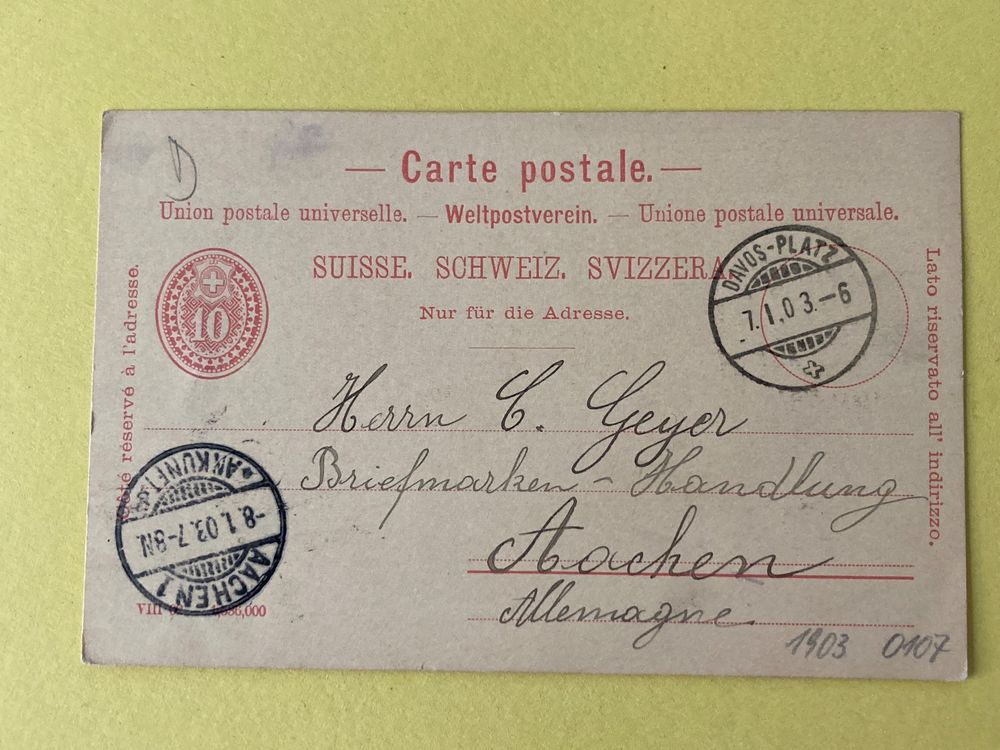 D
— Carte postale. —
Union postale universelle. — Weltpostverein. — Unione postale universale.
SUISSE. SCHWEIZ. SVIZZERA.
Nur für die Adresse.
10
DAVOS-PLATZ
7.I.03.–6
Côté réservé à l'adresse.
Lato riservato all' indirizzo.
Herrn C. Geyer
Briefmarken-Handlung
Aachen
Allemagne
ANKUNFT
-8.1.03.7-8N.
AACHEN 1
VIII
,000
1903 0107